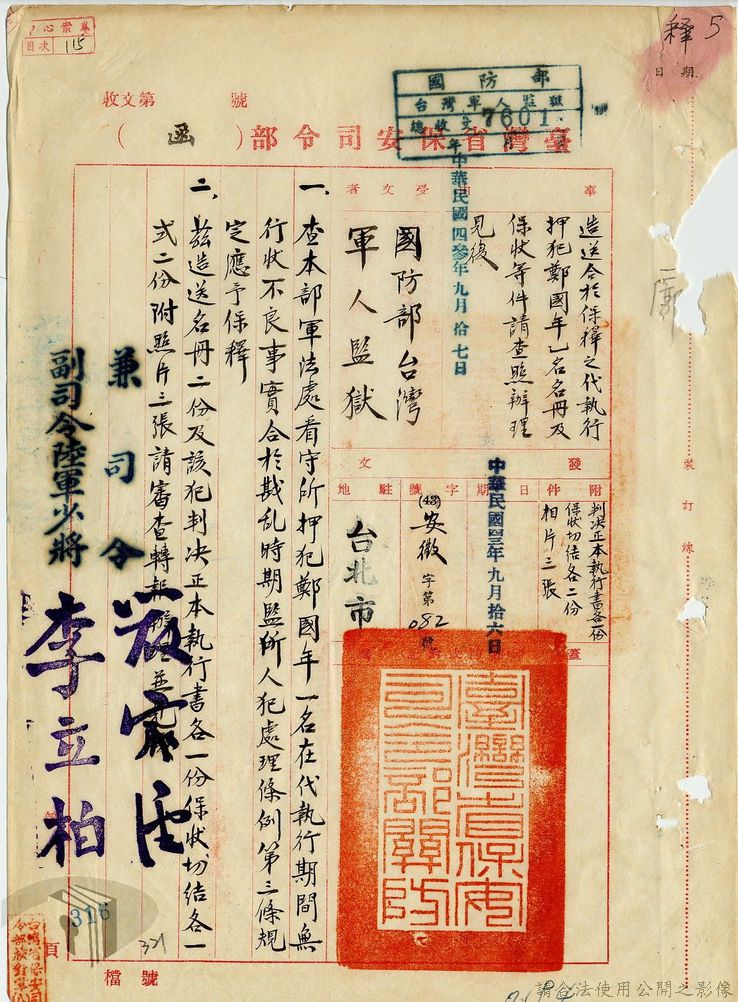 檔案中心
目次 115
释 5
期日
收文第 號
國防部
台灣軍人監獄
總收文 7601
臺灣省保安司令部（函）
中華民國四參年九月拾七日
事由
造送合於保釋之代執行
押犯鄭國年乙名名冊及
保狀等件請查照辦理
見後
受文者
國防部台灣
軍人監獄
附件
判决正本執行書各一份
保狀切结各二份
相片三張
發文
日期
中華民國四三年九月拾六日
字號
(43)安徵字第082號
駐地
台北市
臺灣省保安司令部關防
一、查本部軍法處看守所押犯鄭國年一名在代執行期間無
行狀不良事實合於戡乱時期監所人犯處理條例第三條規
定應予保釋
二、兹造送名冊二份及該犯判决正本執行書各一份保狀切结各一
式二份附照片三張請審查轉報
兼司令
副司令陸軍少將
李立柏
裝訂線
316
321
頁
檔號
請合法使用公開之影像